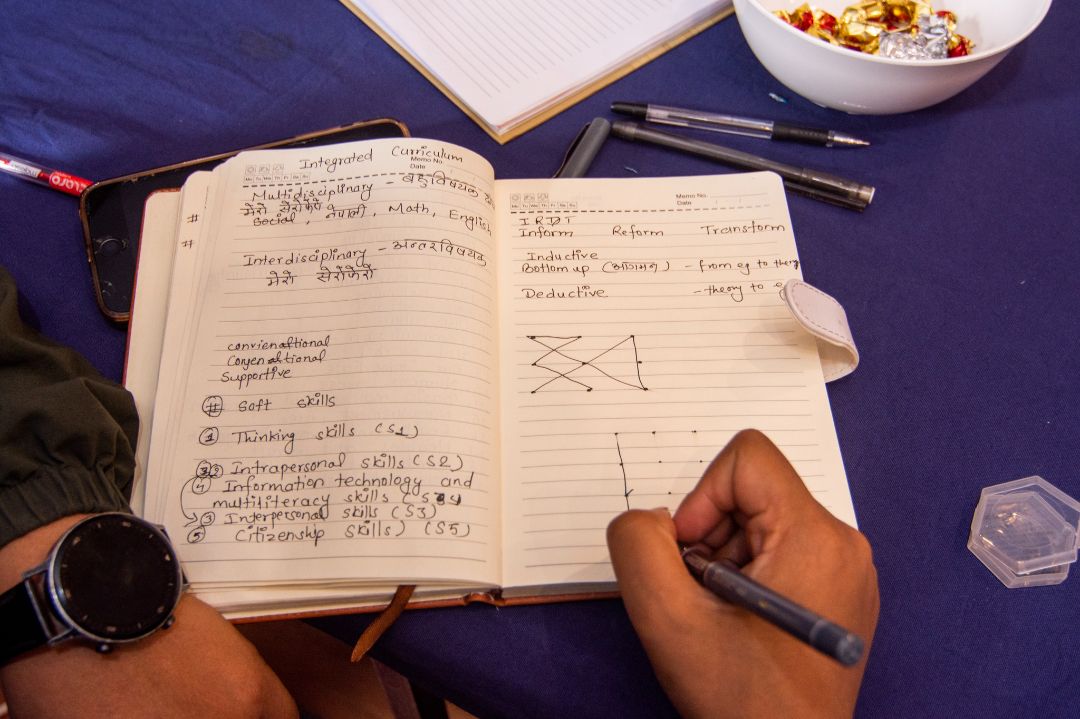 Integrated Curriculum
Memo No.
Date
Mo Tu We Th Fr Sa Su
Multidisciplinary - बहुविषयक
मेरो सेरोफेरो
# Social, नेपाली, Math, English
#
Interdisciplinary - अन्तरविषयक
मेरो सेरोफेरो
convienational
Conyenational
Supportive
# Soft skills
1 Thinking skills (S1)
Intrapersonal skills (S2)
4 Information technology and
multiliteracy skills
3 Interpersonal skills (S3)
5 Citizenship skills) (S5)
Memo No.
Date
Mo Tu We Th Fr Sa Su
IRDT
Inform Reform Transform
Inductive
Bottom up (आगमन) - from eg to theory
Deductive - theory to e